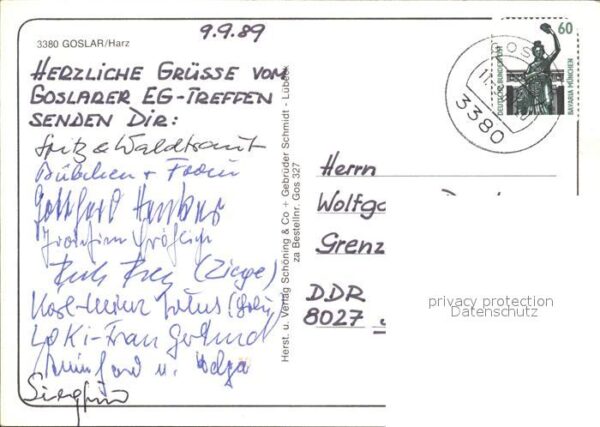 3380 GOSLAR/Harz
9.9.89
HERZLICHE GRÜSSE VOM
GOSLARER EG-TREFFEN
SENDEN DIR:
Fritz & Waldtraut
Gotthard
Joachim Fröhlich
(Ziege)
Karl-Heinz
LOKI-Frau Gertrud
u. Helga
Siegfried
Herst. u. Verlag Schöning & Co + Gebrüder Schmidt - Lübeck
za Bestellnr. Gos 327
60
DEUTSCHE BUNDESPOST
BAVARIA MÜNCHEN
GOS
11.
3380
Herrn
Wolfga
Grenz
DDR
8027
privacy protection
Datenschutz